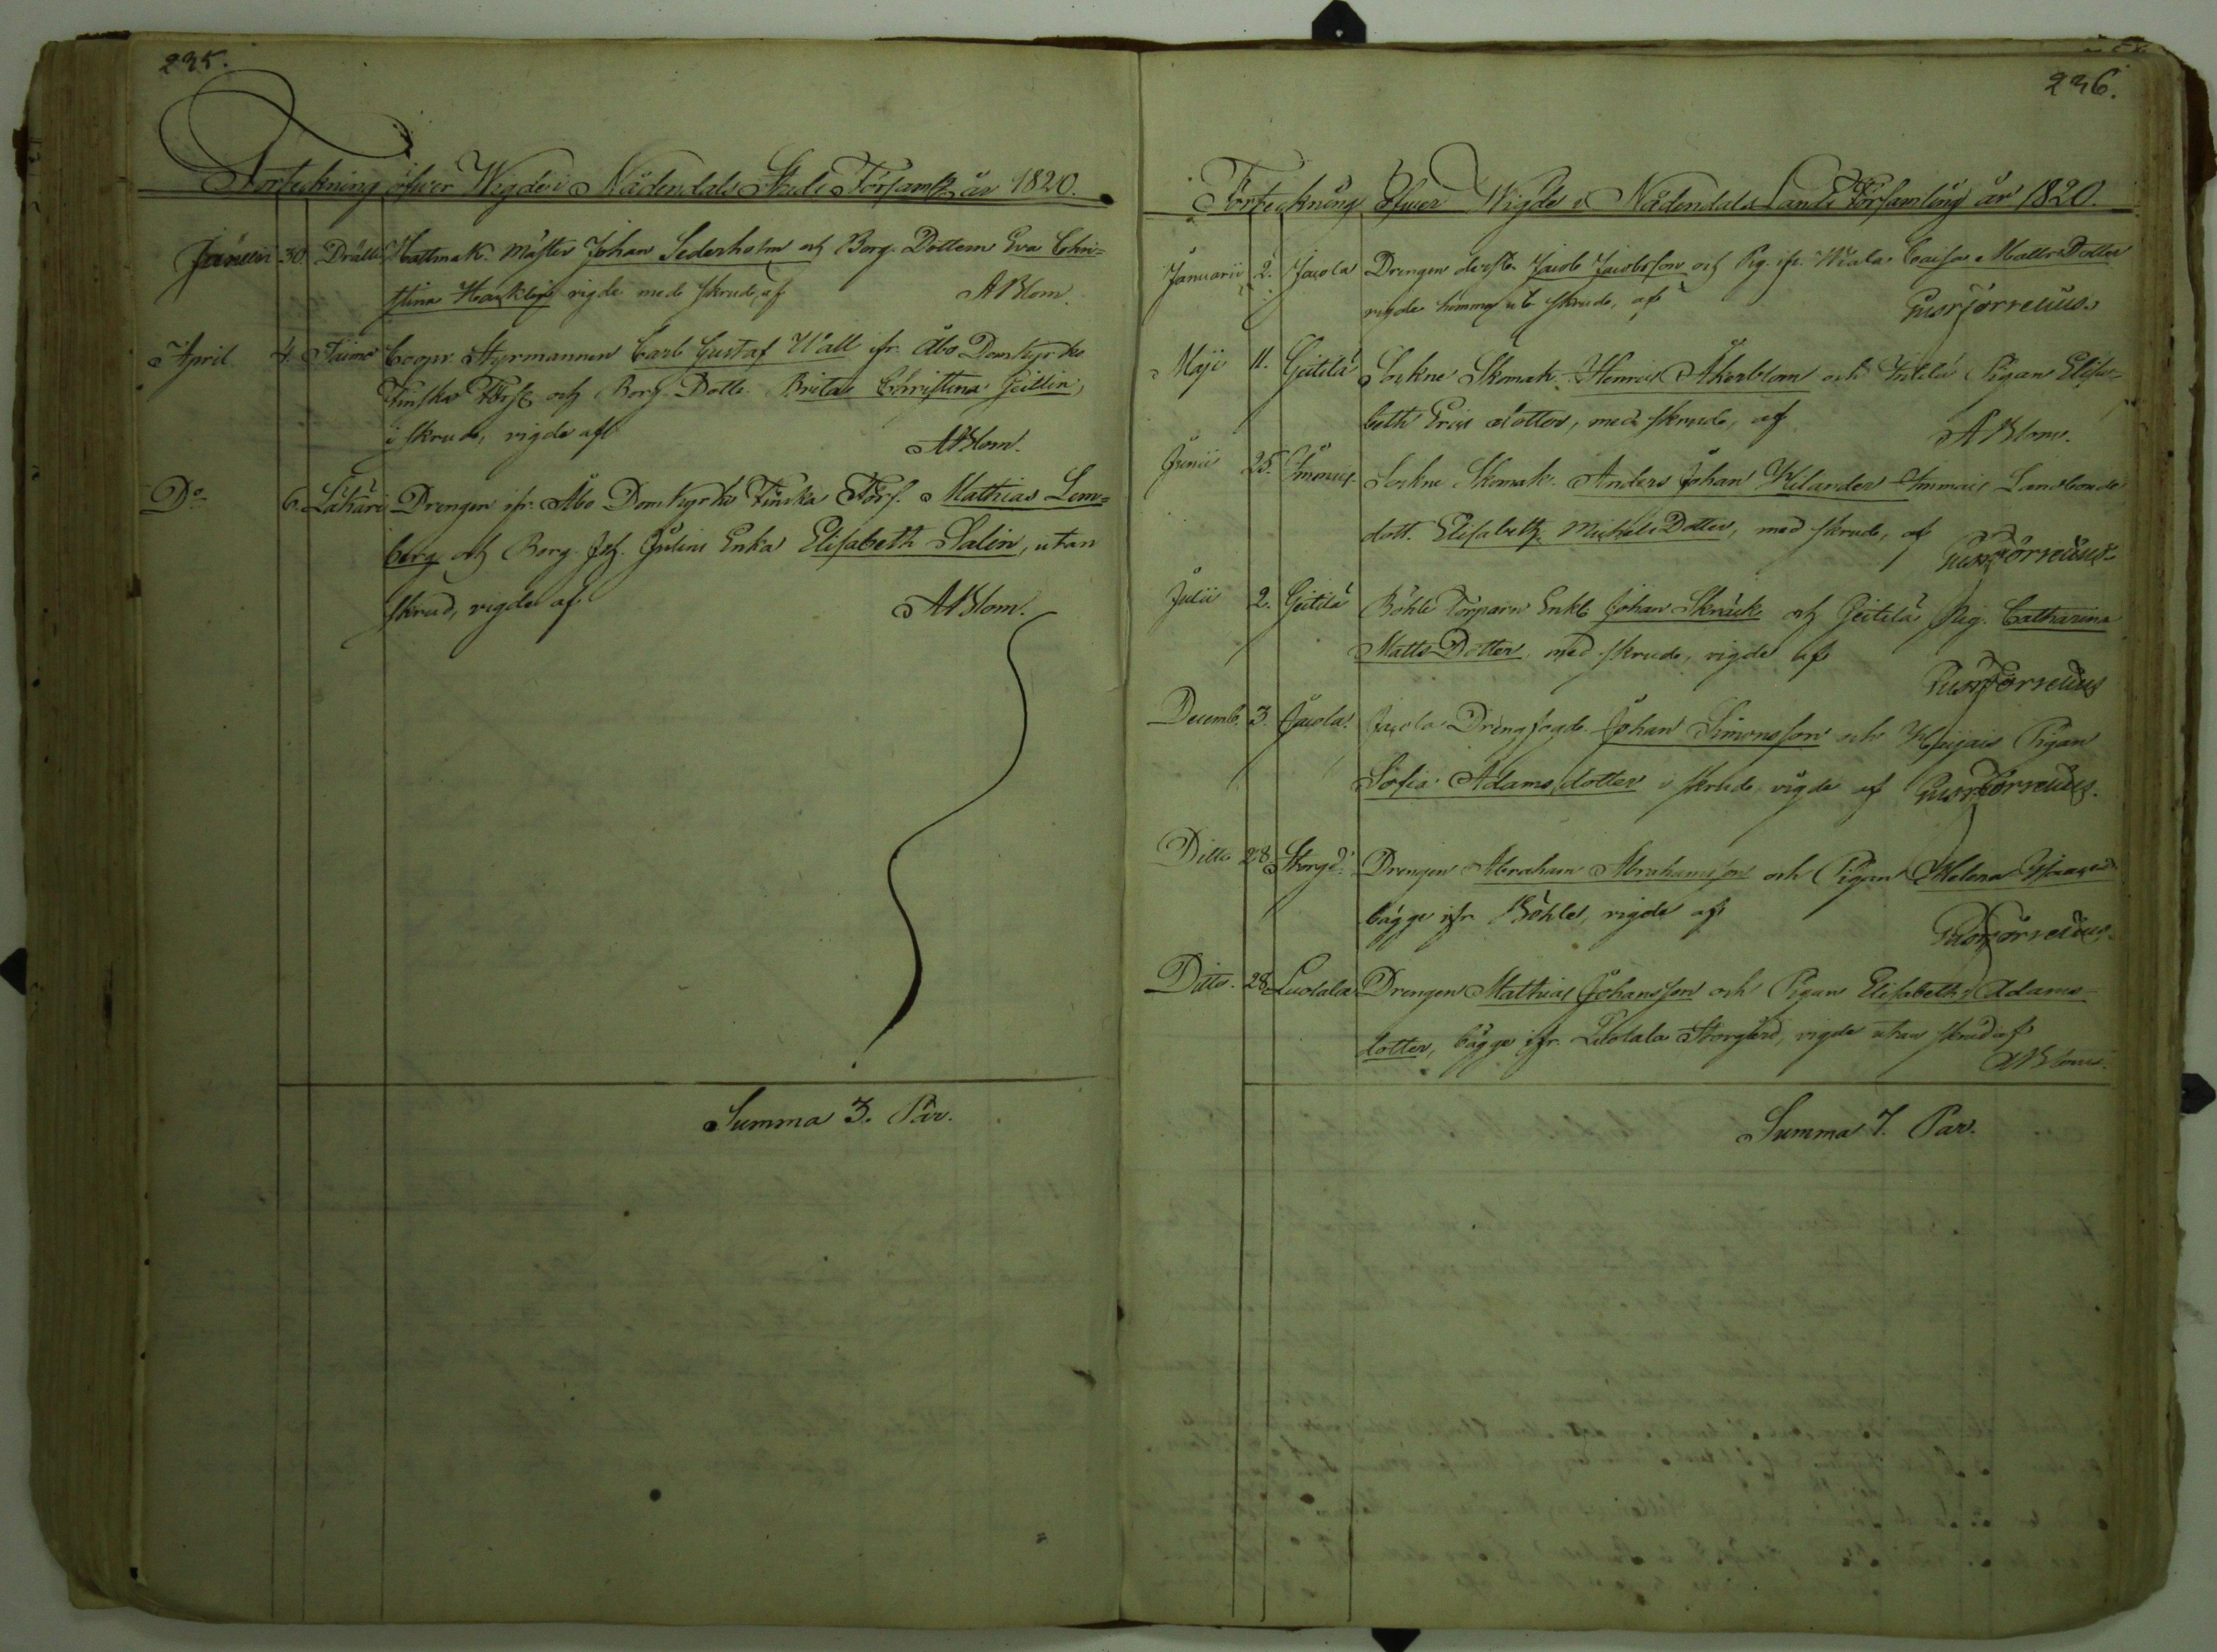 235.
Förteckning öfwer Wigde i Nådendals Stads Församl. år 1820.
Januari 30. Hattmak. Mäster Johan Sederholm och Borg. Dottern Eva Chri-
stina vigde med skrud, af ABlom.
April 4. Coopv. Styrmannen Carl Gustaf Wall ifr. Åbo Domkyrko
Finska Förs. och Borg. Dottr. Brita Christina Geitlin,
i skrud, vigde af ABlom.
Do 6. Drengen ifr. Åbo Domkyrko Finska Förs. Mathias Lem-
berg och Borg. Enka Elisabeth Salin, utan
skrud, vigde af ABlom.
Summa 3. Par.
236.
Förteckning öfwer Wigde i Nådendals Lands Församling år 1820.
Januarii 2. Jacola Drengen derst. Jacob Jacobsson och Pig. ifr. Caisa Matts Dotter
vigde skrud, af
Maji 11. Geitilä Sockne Skomak. Henric Åkerblom och Pigan Elisa-
beth Erics dotter, med skrud, af ABlom.
Junii 25. Immais Sockne Skomak. Anders Johan Kilander Immais Landbonde
dott. Elisabeth Michels Dotter, med skrud, af
Julii 2. Geitilä Böhle Torparn Enkl. Johan Skräck och Geitilä Pig. Catharina
Matts Dotter med skrud, vigde af
Decemb. 3. Jacola Jacola Drengfogde Johan Simonsson och Pigan
Sofia Adamsdotter i skrud vigde af
Ditto 28 Storgd. Drengen Abraham Abrahamsson och Pigan Helena
bägge ifr. Böhle, vigde af
Ditto. 28 Luolala Drengen Mathias Johansson och Pigan Elisabeth Adams-
dotter, bägge ifr. Luolala Storgård, vigde utan skrud af
ABlom.
Summa 7. Par.